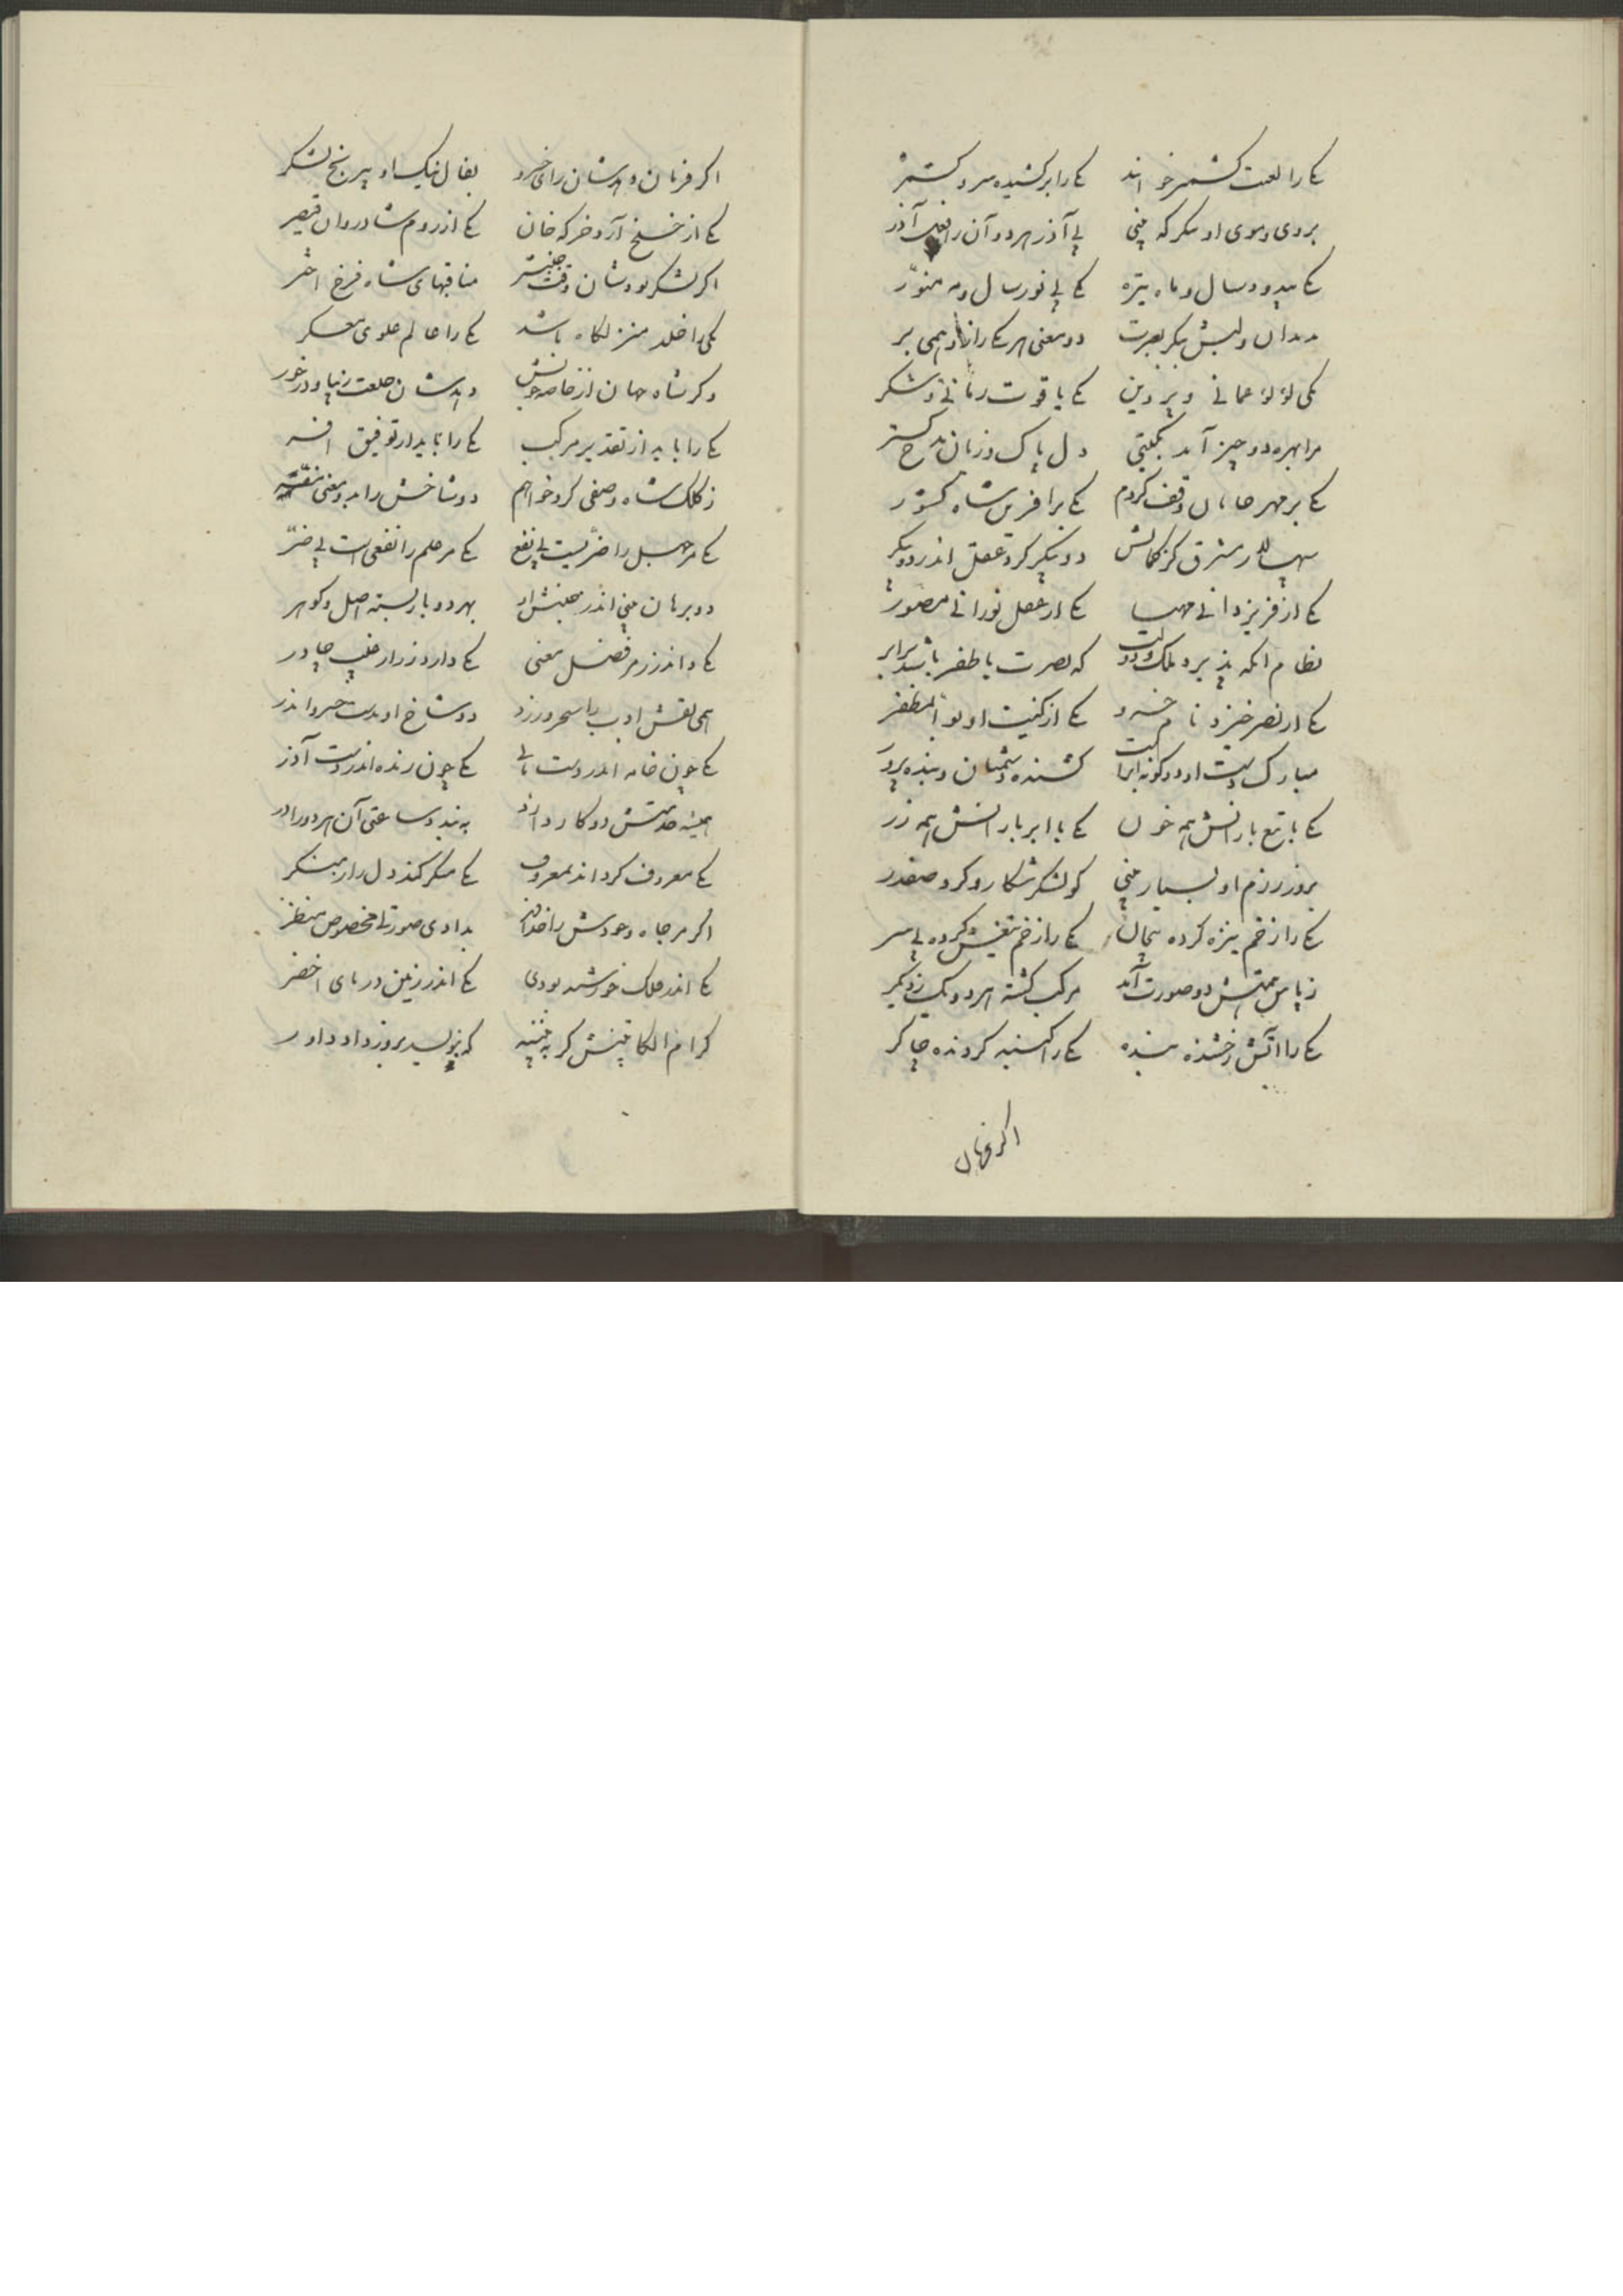 یکی را لعبت کشمیر خوانند یکی را برکشیده سرو کشمر
بروی و موی او بنگر که بینی بی آذر هر دو آن را فعل آذر
یکی بی دود سال و ماه تیره یکی بی نور سال و مه منور
بدندان و لبش بنگر بعبرت دو معنی هر یکی را زان همی بر
یکی لؤلؤ عمانی و پروین یکی یاقوت رمانی و شکر
مرا بهره دو چیز آمد بگیتی دل پاک و زبان مدح گستر
یکی بر مهر جانان وقف کردم یکی بر آفرین شاه کشور
سپهسالار مشرق کز کمالش دو پیکر کرد عقل اندر دو پیکر
یکی از فر یزدانی مهیا یکی از عقل نورانی مصور
نظام آنکه پذیرد ملک و دولت که نصرت با ظفر باشد برابر
یکی از نصر خیزد نام خسرو یکی از کنیت او بو المظفر
مبارک دست او دو گونه ابر است کشنده دشمنان و بنده پرور
یکی با تیغ بارانش همه خون یکی با ابر بارانش همه زر
بروز رزم او بسیار بینی گو لشکر شکار و گرد صفدر
یکی را زخم نیزه کرده بیجان یکی را زخم تیغش کرده بی سر
ز پاس همتش دو صورت آمد مرکب گشته هر دو یک ز دیگر
یکی را آتش رخشنده بنده یکی را گنبد گردنده چاکر
اگر فرمان
اگر فرمان دهدشان رای خسرو بفال نیک او بی رنج لشکر
یکی از خلخ آرد خرگه خان یکی از روم شادروان قیصر
اگر لشکر بودشان وقت جنبش مناقبهای شاه فرخ اختر
یکی را خلد منزلگاه باشد یکی را عالم علوی معسکر
وگر شاه جهان از خاصه خویش دهدشان خلعت زیبا و درخور
یکی را باید از تقدیر مرکب یکی را باید از توفیق افسر
ز کلک شاه وصفی کرد خواهم دو شاخش را بدو معنی مفسر
یکی مر جهل را ضریست بی نفع یکی مر علم را نفعی است بی ضر
دو برهان بینی اندر جنبش او بهر دو باز بسته اصل و گوهر
یکی داند ز رمز فضل معنی یکی دارد ز راز غیب چادر
همی نقش ادب را سحر ورزد دو شاخ او بدست خسرو اندر
یکی چون خامه اندر دست مانی یکی چون رنده اندر دست آذر
همیشه خدمتش دو کار داند به بیند و ساعتی آن هر دو را در
یکی معروف گرداند بمعروف یکی منکر کند دل را ز منکر
اگر مر جاه و جودش را خداوند بدادی صورتی مخصوص منظر
یکی اندر فلک خورشید بودی یکی اندر زمین دریای اخضر
کرام الکاتبینش گر به بیند که بنویسد بروز داد داور